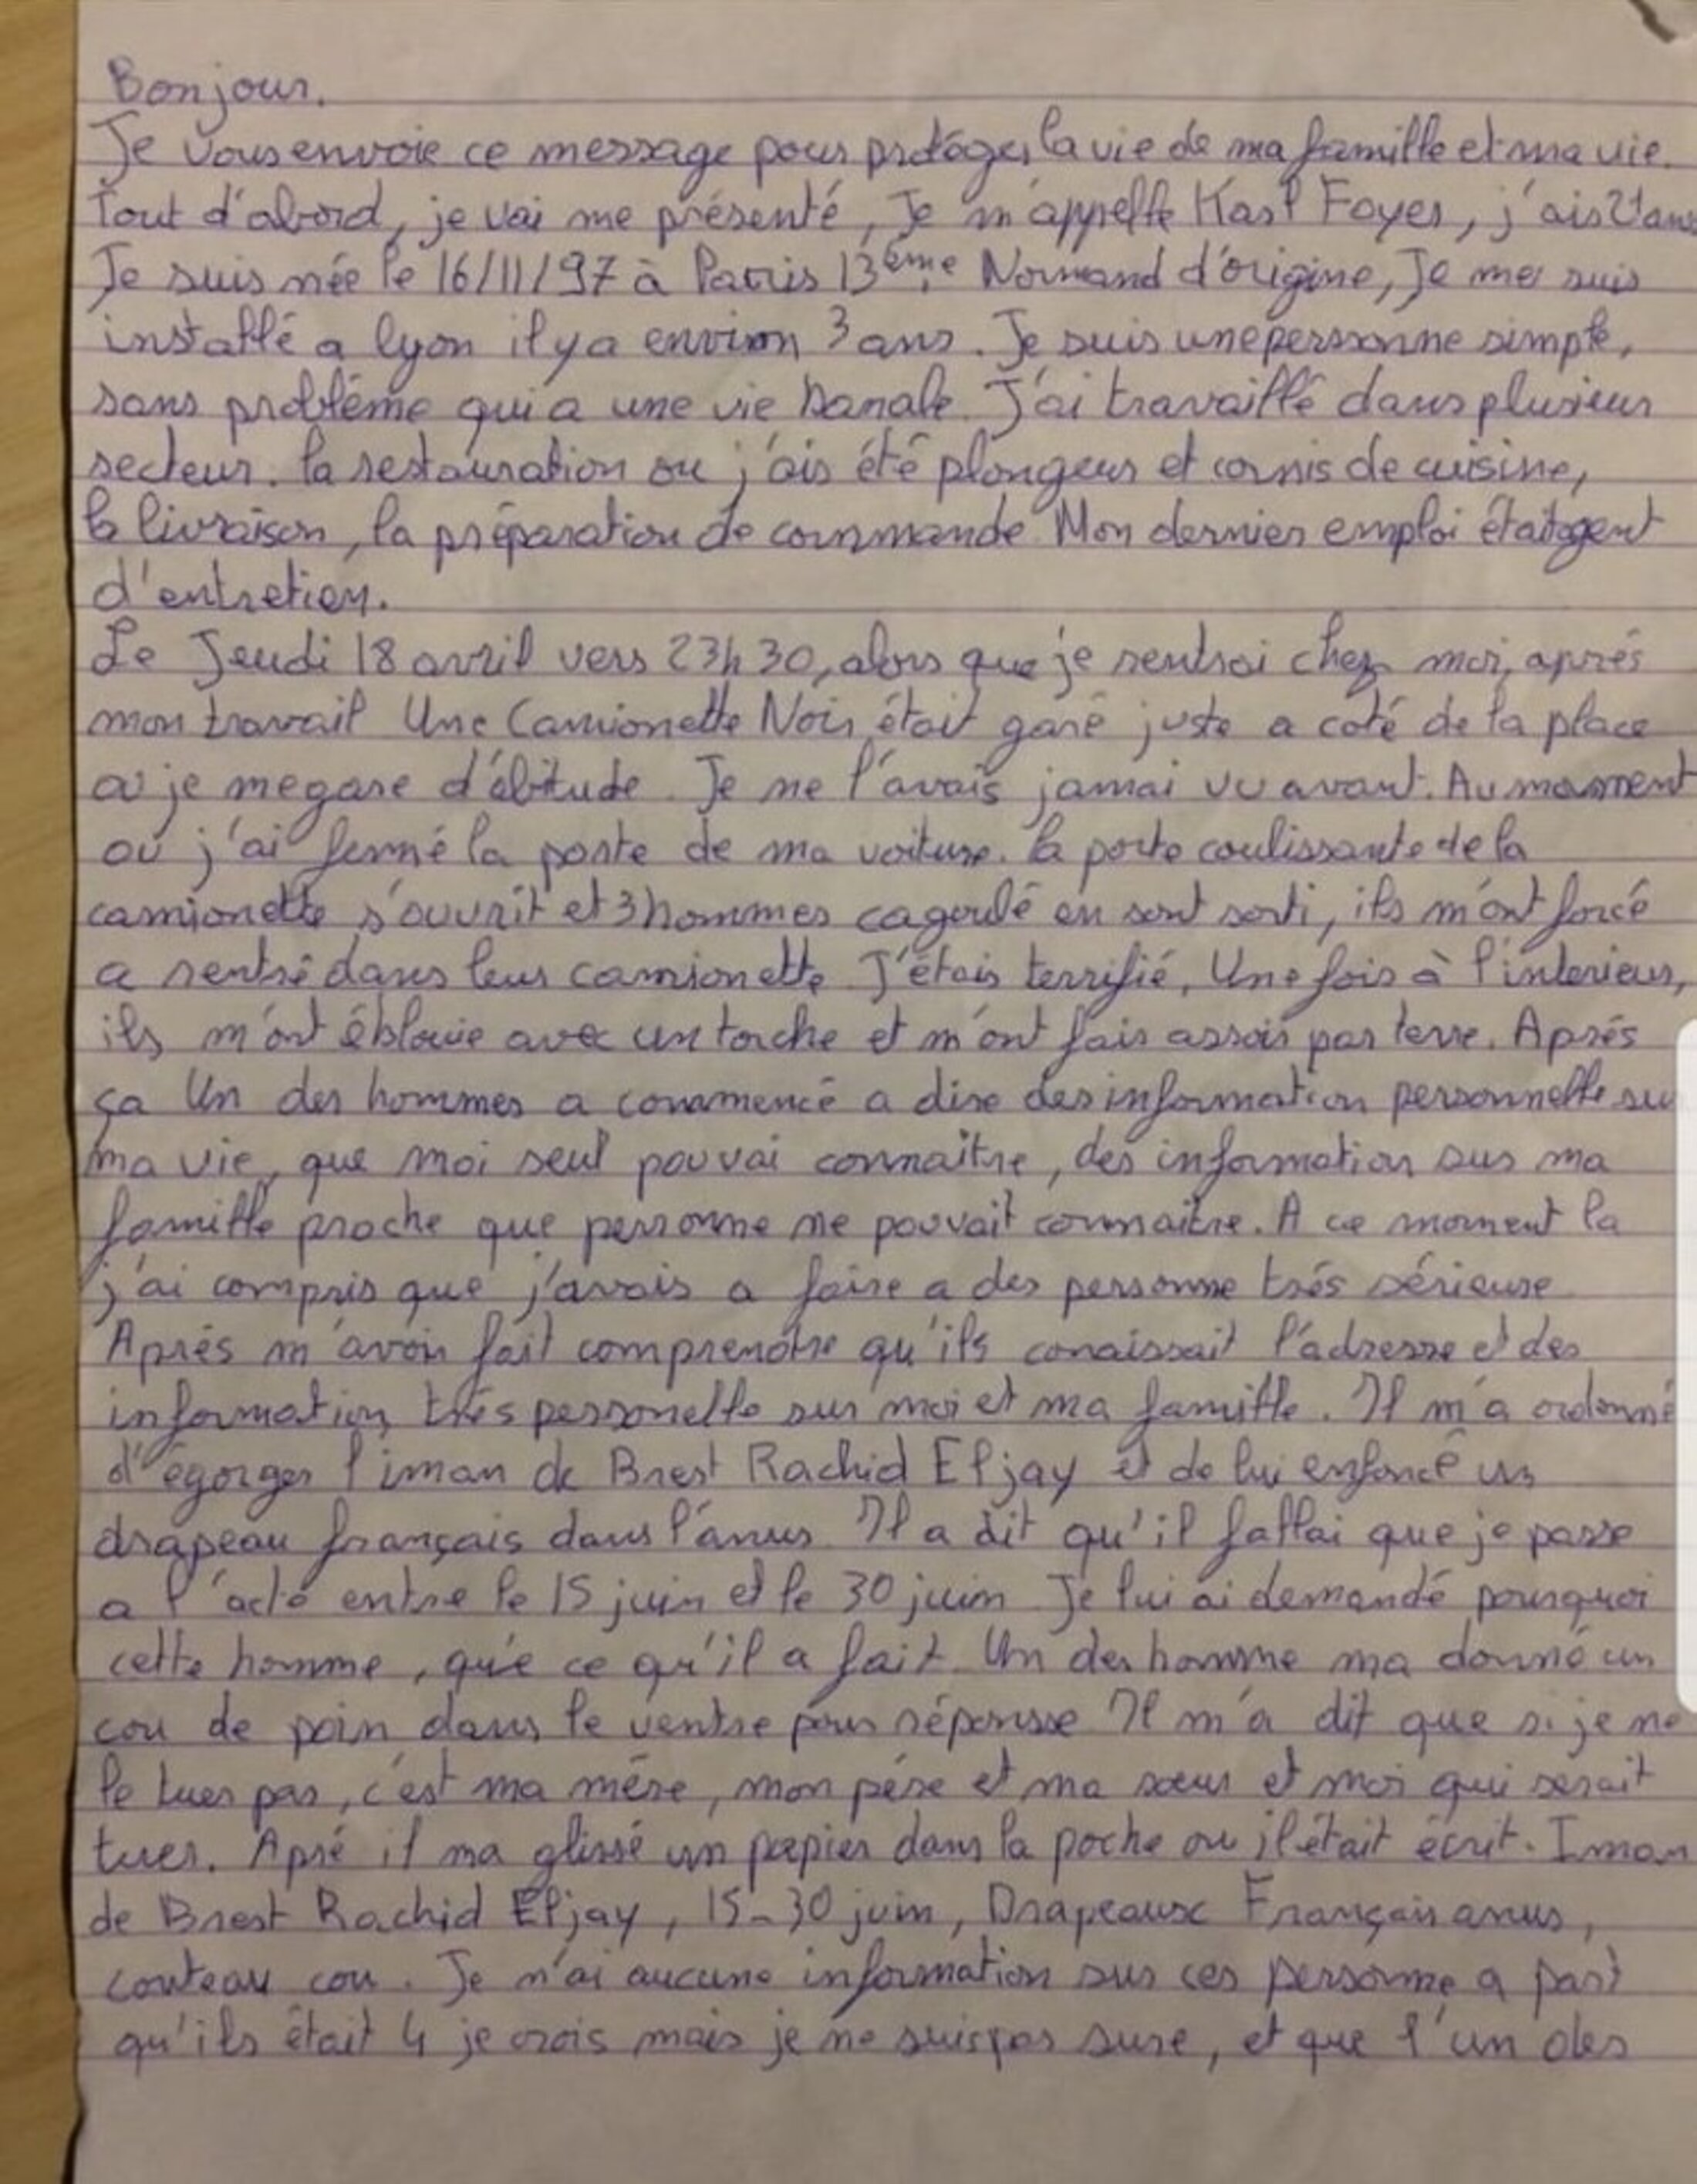 Bonjour.
Je vous envoie ce message pour protéger la vie de ma famille et ma vie.
Tout d'abord, je vai me présenté, Je m'appelle Karl Foyer, j'ais 21 ans
Je suis née le 16/11/97 à Paris 13ème. Normand d'origine, Je me suis
installé a lyon il y a environ 3 ans. Je suis une personne simple,
sans problème qui a une vie banale. J'ai travaillé dans plusieur
secteur. la restauration ou j'ais été plongeur et comis de cuisine,
la livraison, la préparation de commande. Mon dernier emploi était agent
d'entretien.
Le Jeudi 18 avril vers 23h30, alors que je rentrai chez moi, après
mon travail Une Camionette Noir était garé juste a coté de la place
ou je me gare d'abitude. Je ne l'avais jamai vu avant. Au moment
où j'ai fermé la porte de ma voiture. la porte coulissante de la
camionette s'ouvrit et 3 hommes cagoulé en sont sorti, ils m'ont forcé
a rentré dans leur camionette. J'étais terrifié, Une fois à l'interieur,
ils m'ont éblouie avec un torche et m'ont fais assoir par terre. Après
ça Un des hommes a commencé a dire des information personnelle sur
ma vie, que moi seul pouvai connaitre, des information sur ma
famille proche que personne ne pouvait connaitre. A ce moment la
j'ai compris que j'avais a faire a des personne très sérieuse
Après m'avoir fait comprendre qu'ils conaissait l'adresse et des
information très personelle sur moi et ma famille. Il m'a ordonné
d'égorger l'iman de Brest Rachid Eljay et de lui enfoncé un
drapeau français dans l'anus. Il a dit qu'il fallai que je passe
a l'acte entre le 15 juin et le 30 juin. Je lui ai demandé pourquoi
cette homme, qu'e ce qu'il a fait. Un des homme ma donné un
cou de poin dans le ventre pour réponsse. Il m'a dit que si je ne
le tuer pas, c'est ma mère, mon père et ma sœur et moi qui serait
tuer. Apré il ma glissé un papier dans la poche ou il était écrit. Iman
de Brest Rachid Eljay, 15-30 juin, Drapeaux Français anus,
couteau cou. Je n'ai aucune information sur ces personne a part
qu'ils était 4 je crois mais je ne suis pas sure, et que l'un des